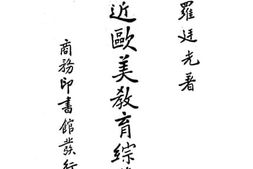 羅廷光著
近歐美教育綜
商務印書館發行